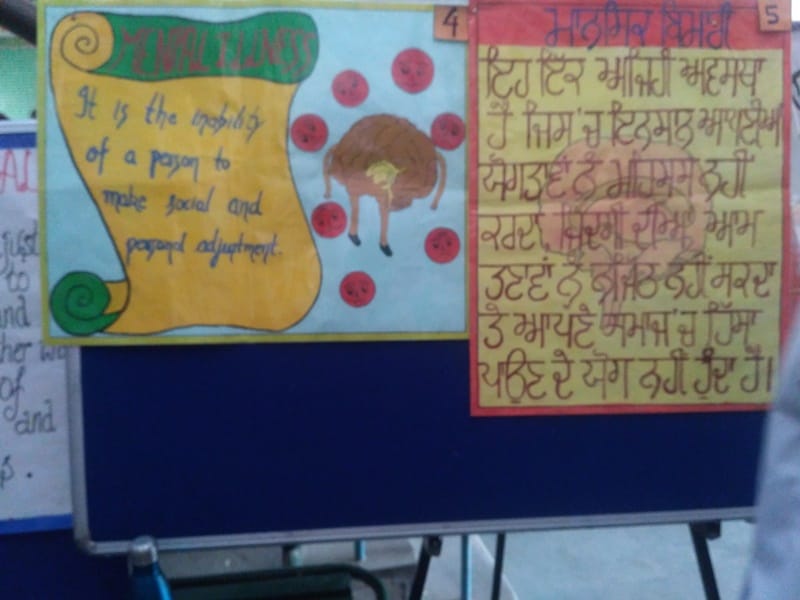 just
to
and
of
and
4
MENTAL ILLNESS
It is the inability
of a person to
make social and
personal adjustment.
5
ਮਾਨਸਿਕ ਬਿਮਾਰੀ
ਇਹ ਇੱਕ ਅਜਿਹੀ ਅਵਸਥਾ
ਹੈ ਜਿਸ 'ਚ ਇਨਸਾਨ ਆਪਣੀਆਂ
ਯੋਗਤਾਵਾਂ ਨੂੰ ਮਹਿਸੂਸ ਨਹੀਂ
ਕਰਦਾ, ਜ਼ਿੰਦਗੀ ਦੀਆਂ ਆਮ
ਤਣਾਵਾਂ ਨੂੰ ਨਜਿੱਠ ਨਹੀਂ ਸਕਦਾ
ਤੇ ਆਪਣੇ ਸਮਾਜ 'ਚ ਹਿੱਸਾ
ਪਾਉਣ ਦੇ ਯੋਗ ਨਹੀਂ ਹੁੰਦਾ ਹੈ।